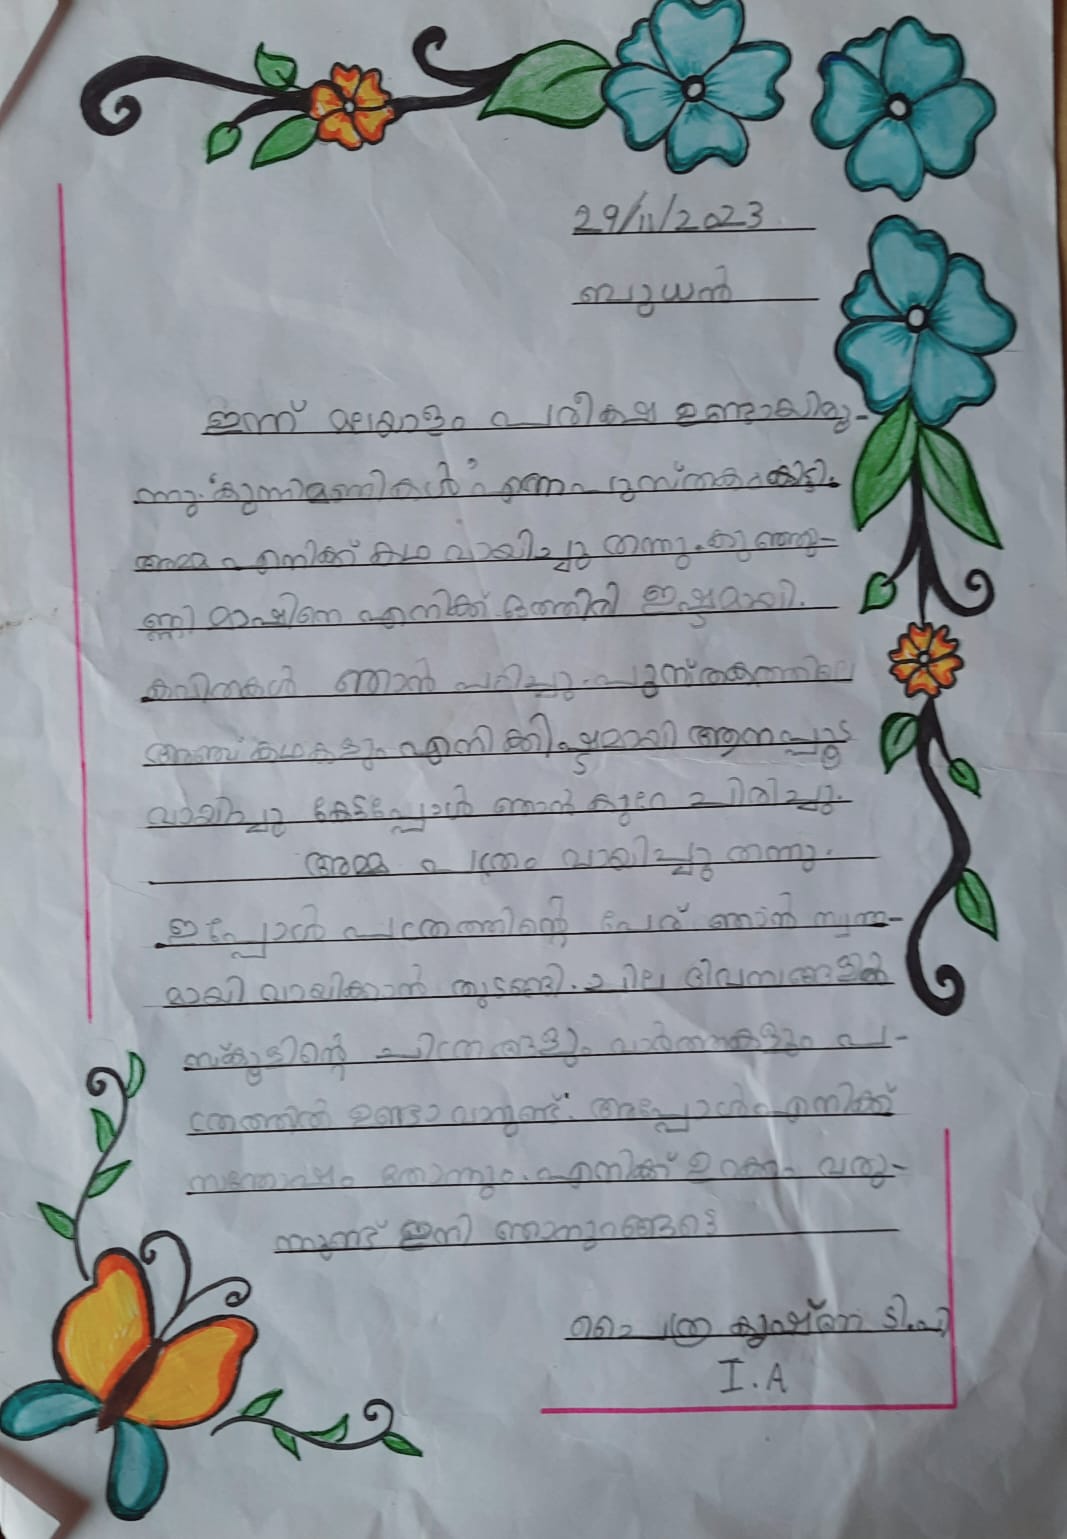 29/11/2023
ബുധൻ
ഇന്ന് മലയാളം പരീക്ഷ ഉണ്ടായിരു-
ന്നു. "കുന്നിമണികൾ" എന്ന പുസ്തകം കിട്ടി.
അമ്മ എനിക്ക് കഥ വായിച്ചു തന്നു. കുഞ്ഞു-
ണ്ണി മാഷിനെ എനിക്ക് ഒത്തിരി ഇഷ്ടമായി.
കവിതകൾ ഞാൻ പഠിച്ചു. പുസ്തകത്തിലെ
അഞ്ച് കഥകളും എനിക്കിഷ്ടമായി ആനപ്പൂട
വായിച്ചു കേട്ടപ്പോൾ ഞാൻ കുറേ ചിരിച്ചു.
അമ്മ പത്രം വായിച്ചു തന്നു.
ഇപ്പോൾ പത്രത്തിന്റെ പേര് ഞാൻ സ്വന്ത-
മായി വായിക്കാൻ തുടങ്ങി. ചില ദിവസങ്ങളിൽ
സ്കൂളിന്റെ ചിത്രങ്ങളും വാർത്തകളും പ-
ത്രത്തിൽ ഉണ്ടാവാറുണ്ട്. അപ്പോൾ എനിക്ക്
സന്തോഷം തോന്നും. എനിക്ക് ഉറക്കം വരു-
ന്നുണ്ട് ഇനി ഞാനുറങ്ങട്ടെ
കൃഷ്ണ ടി.പി
I.A